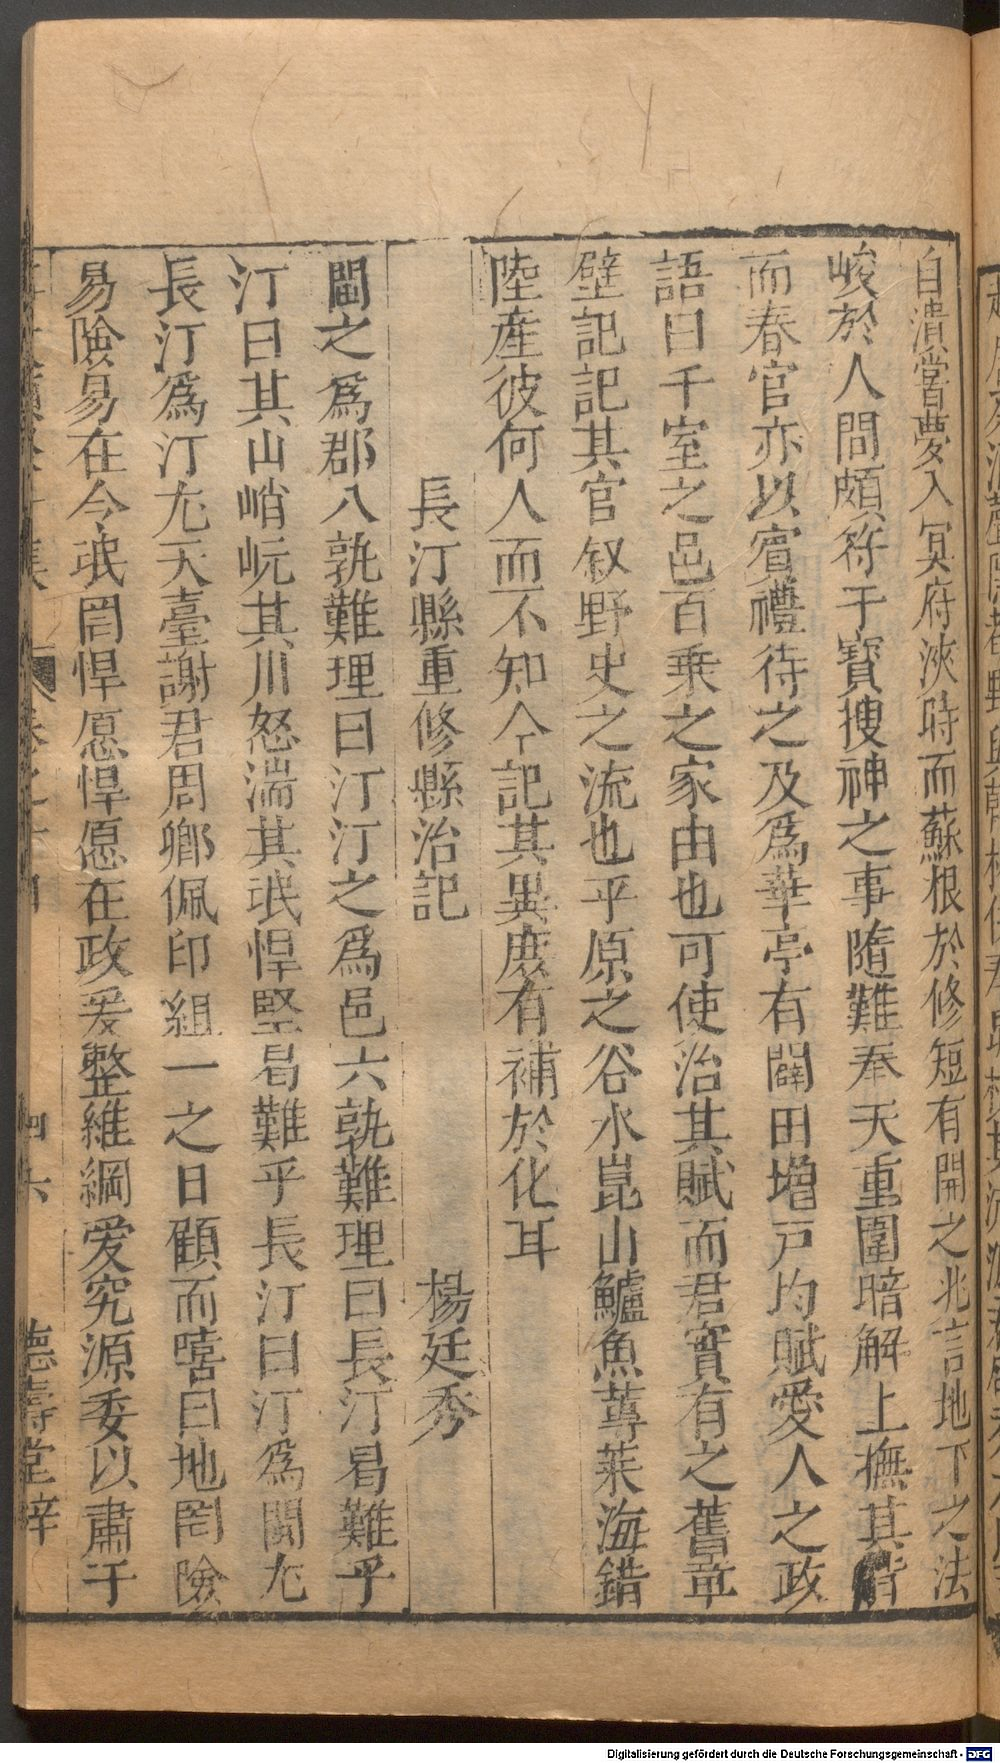 自潰嘗夢入冥府浹時而蘇根於修短有開之兆言地下之法
峻於人間頗符于寶搜神之事隨難奉天重圍暗解上撫其背
而春官亦以賓禮待之及爲華亭有闢田增戸均賦愛人之政
語曰千室之邑百乗之家由也可使治其賦而君實有之舊章
壁記記其官叙野史之流也平原之谷水崑山鱸魚蓴菜海錯
陸産彼何人而不知今記其異庶有補於化耳
長汀縣重修縣治記 楊廷秀
閩之爲郡八孰難理曰汀汀之爲邑六孰難理曰長汀曷難乎
汀曰其山峭岏其川怒湍其珉悍堅曷難乎長汀曰汀爲閩尤
長汀爲汀尤天臺謝君周卿佩印組一之日顧而嘻曰地罔險
易險易在今珉罔悍愿悍愿在政爰整維綱爰究源委以肅于
集 卷之十四 四六 德壽堂梓
Digitalisierung gefördert durch die Deutsche Forschungsgemeinschaft - DFG